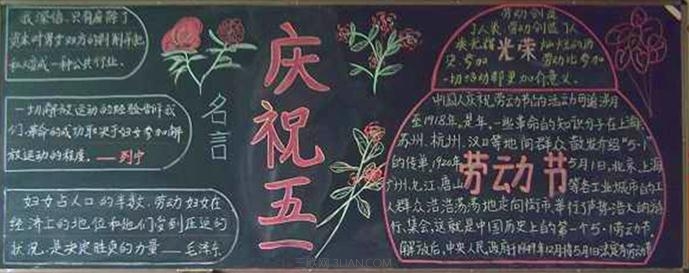 我深信，只有废除了
资本对男女双方的剥削并把
私人变成一种公共行业。
一切解放运动的经验告诉我
们，革命的成功取决于妇女参加解
放运动的程度。——列宁
妇女占人口的半数，劳动妇女在
经济上的地位和她们受到压迫的
状况，是决定胜负的力量——毛泽东
名言
庆祝五一
劳动创造
了人类，劳动创造了人
类光辉灿烂的历
史，参加劳动比参加
一切活动都更加有意义。
光荣
中国人庆祝劳动节的活动可追溯
至1918年，是年，一些革命的知识分子在上海、
苏州、杭州、汉口等地向群众散发介绍"5·1"
的传单，1920年5月1日，北京、上海
广州、九江、唐山等各工业城市的工
人群众浩浩荡荡地走向街市，举行了声势浩大的游
行、集会，这就是中国历史上的第一个5·1劳动节，
解放后，中央人民政府于1949年12月将5月1日法定为劳动节
劳动节
三联网3LIAN.COM